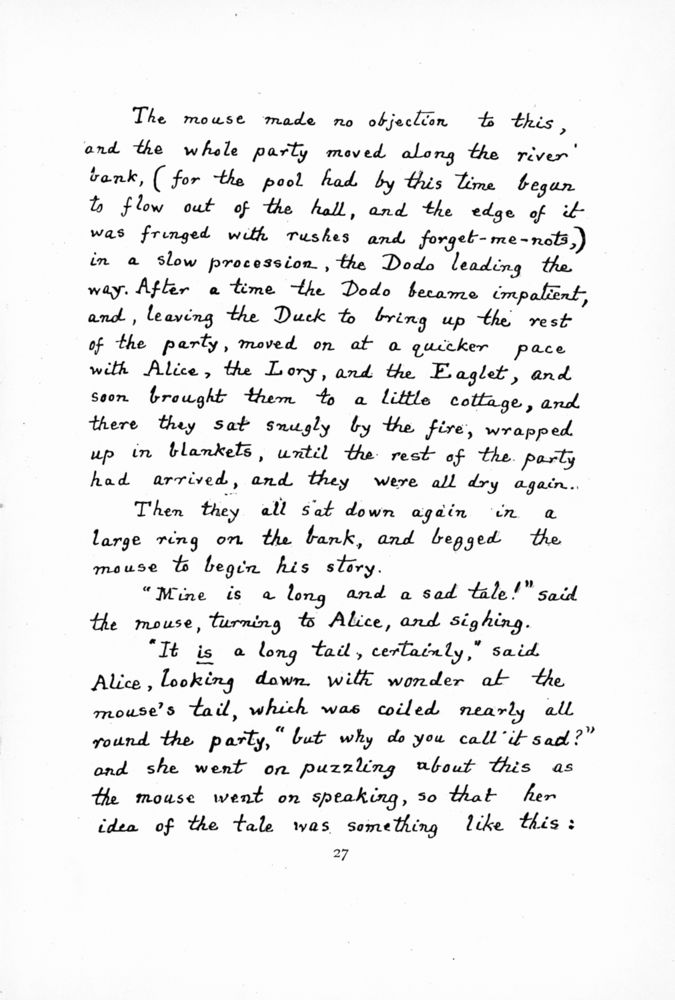 The mouse made no objection to this,
and the whole party moved along the river
bank, (for the pool had by this time begun
to flow out of the hall, and the edge of it
was fringed with rushes and forget-me-nots,)
in a slow procession, the Dodo leading the
way. After a time the Dodo became impatient,
and, leaving the Duck to bring up the rest
of the party, moved on at a quicker pace
with Alice, the Lory, and the Eaglet, and
soon brought them to a little cottage, and
there they sat snugly by the fire, wrapped
up in blankets, until the rest of the party
had arrived, and they were all dry again.
Then they all sat down again in a
large ring on the bank, and begged the
mouse to begin his story.
"Mine is a long and a sad tale!" said
the mouse, turning to Alice, and sighing.
"It is a long tail, certainly," said
Alice, looking down with wonder at the
mouse's tail, which was coiled nearly all
round the party, "but why do you call it sad?"
and she went on puzzling about this as
the mouse went on speaking, so that her
idea of the tale was something like this:
27